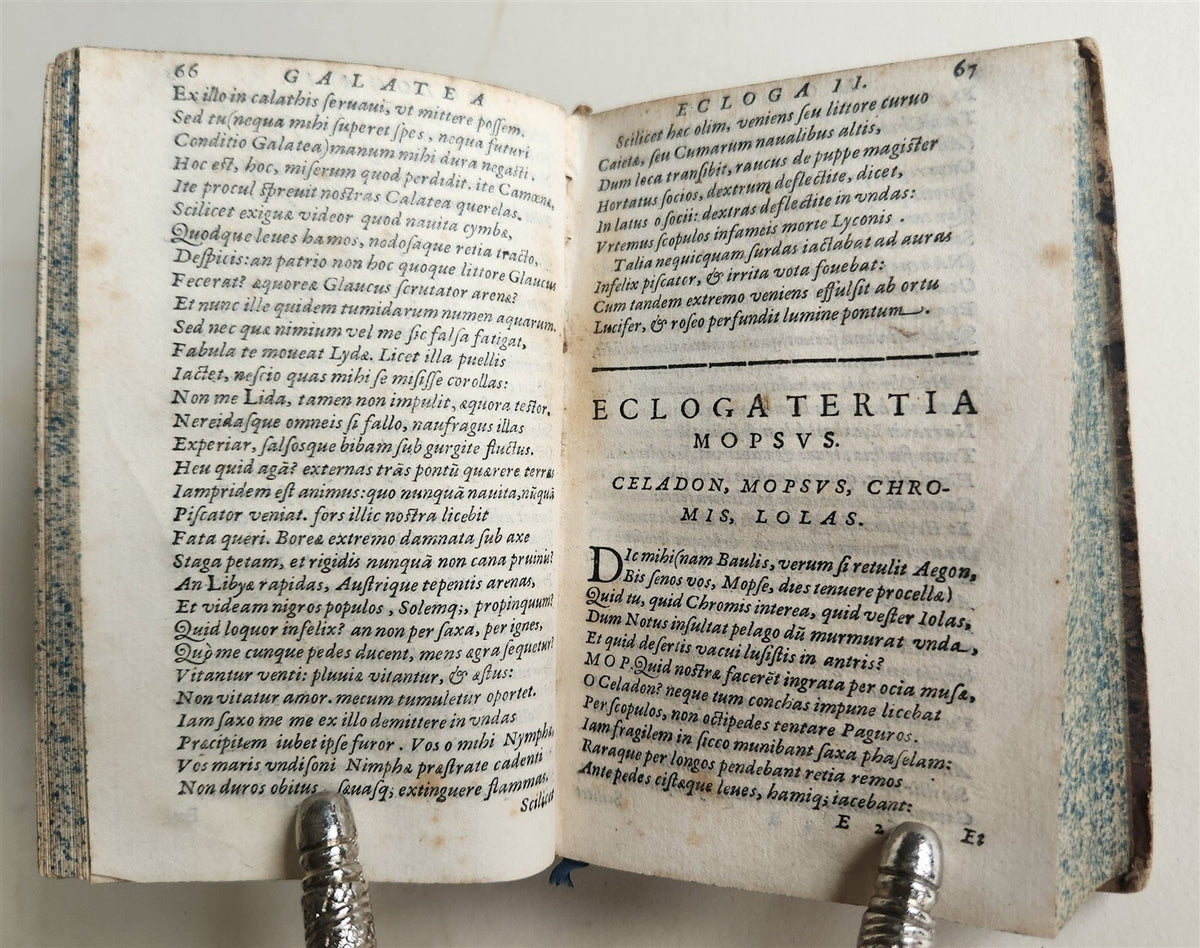 66 GALATEA
Ex illo in calathis ſeruaui, vt mittere poſſem.
Sed tu (nequa mihi ſuperet ſpes, nequa futuri
Conditio Galatea) manum mihi dura negaſti.
Hoc eſt, hoc, miſerum quod perdidit. ite Camœnæ,
Ite procul ſpreuit noſtras Calatea querelas.
Scilicet exiguæ videor quod nauita cymbæ,
Quodque leues hamos, nodoſaque retia tracto,
Deſpicis: an patrio non hoc quoque littore Glaucus
Fecerat? æquoreæ Glaucus ſcrutator arenæ?
Et nunc ille quidem tumidarum numen aquarum.
Sed nec quæ nimium vel me ſic falſa fatigat,
Fabula te moueat Lydæ. Licet illa puellis
Iactet, neſcio quas mihi ſe miſiſſe corollas:
Non me Lida, tamen non impulit, æquora teſtor,
Nereidaſque omneis ſi fallo, naufragus illas
Experiar, ſalſosque bibam ſub gurgite fluctus.
Heu quid agā? externas trās pontū quærere terras
Iampridem eſt animus: quo nunquā nauita, nūquā
Piſcator veniat. fors illic noſtra licebit
Fata queri. Boreæ extremo damnata ſub axe
Staga petam, et rigidis nunquā non cana pruinis?
An Libyæ rapidas, Auſtrique tepentis arenas,
Et videam nigros populos, Solemq;, propinquum?
Quid loquor infelix? an non per ſaxa, per ignes,
Quò me cunque pedes ducent, mens ægra ſequetur?
Vitantur venti: pluuiæ vitantur, & æſtus:
Non vitatur amor. mecum tumuletur oportet.
Iam ſaxo me me ex illo demittere in vndas
Præcipitem iubet ipſe furor. Vos o mihi Nymphæ,
Vos maris vndiſoni Nimphæ præſtrate cadenti
Non duros obitus, ſæuasq; extinguere flammas.
Scilicet
ECLOGA II. 67
Scilicet hac olim, veniens ſeu littore curuo
Caietæ, ſeu Cumarum naualibus altis,
Dum loca tranſibit, raucus de puppe magiſter
Hortatus ſocios, dextrum deflectite, dicet,
In latus o ſocii: dextras deflectite in vndas:
Vrtemus ſcopulos infameis morte Lyconis.
Talia nequicquam ſurdas iactabat ad auras
Infelix piſcator, & irrita vota fouebat:
Cum tandem extremo veniens effulſit ab ortu
Lucifer, & roſeo perfundit lumine pontum.
ECLOGA TERTIA
MOPSVS.
CELADON, MOPSVS, CHRO-
MIS, LOLAS.
DIc mihi (nam Baulis, verum ſi retulit Aegon,
Bis ſenos vos, Mopſe, dies tenuere procellæ)
Quid tu, quid Chromis interea, quid veſter Iolas,
Dum Notus inſultat pelago dū murmurat vnda,
Et quid deſertis vacui luſiſtis in antris?
MOP. Quid noſtræ facerēt ingrata per ocia muſæ,
O Celadon? neque tum conchas impune licebat
Per ſcopulos, non octipedes tentare Paguros.
Iam fragilem in ſicco munibant ſaxa phaſelam:
Raraque per longos pendebant retia remos
Ante pedes ciſtæque leues, hamiq; iacebant:
E 2 Et